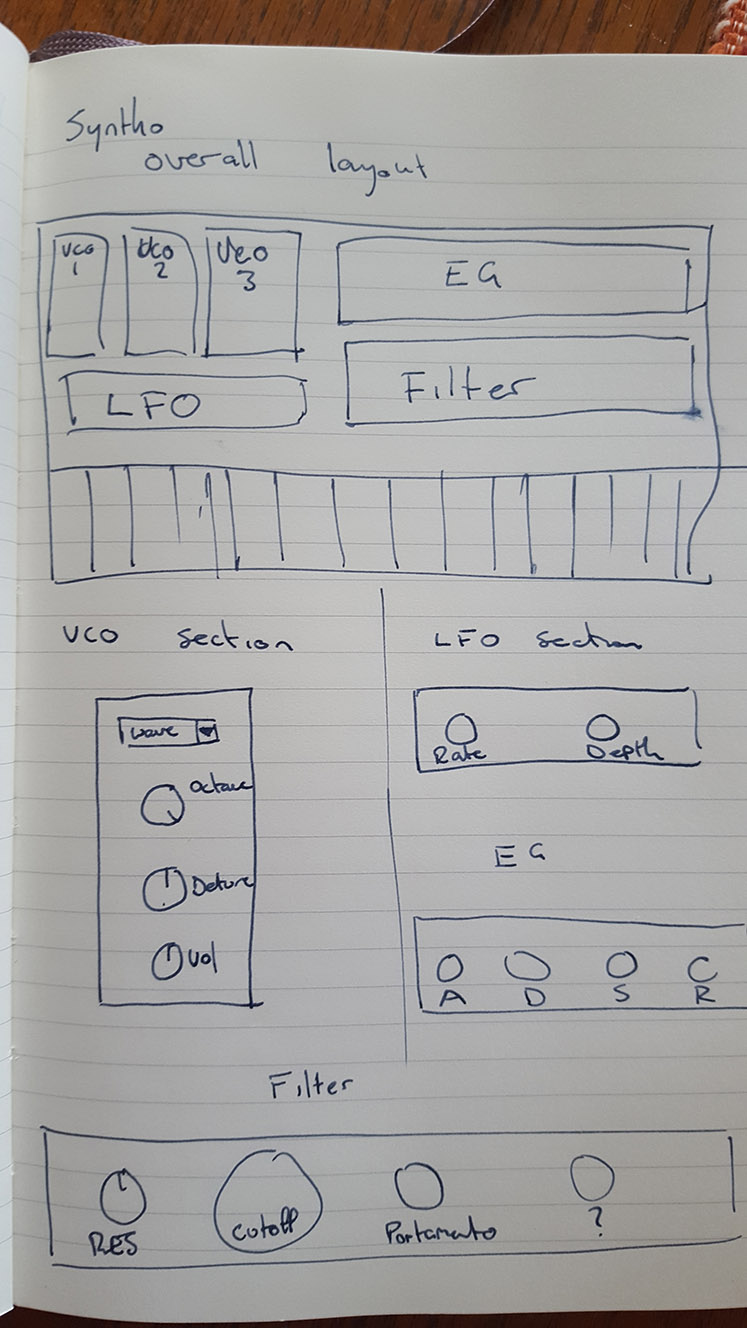 Syntho
overall layout
VCO 1
VCO 2
VCO 3
EG
LFO
Filter
VCO section
wave
Octave
Detune
Vol
LFO section
Rate Depth
EG
A D S R
Filter
RES Cutoff Portamento ?